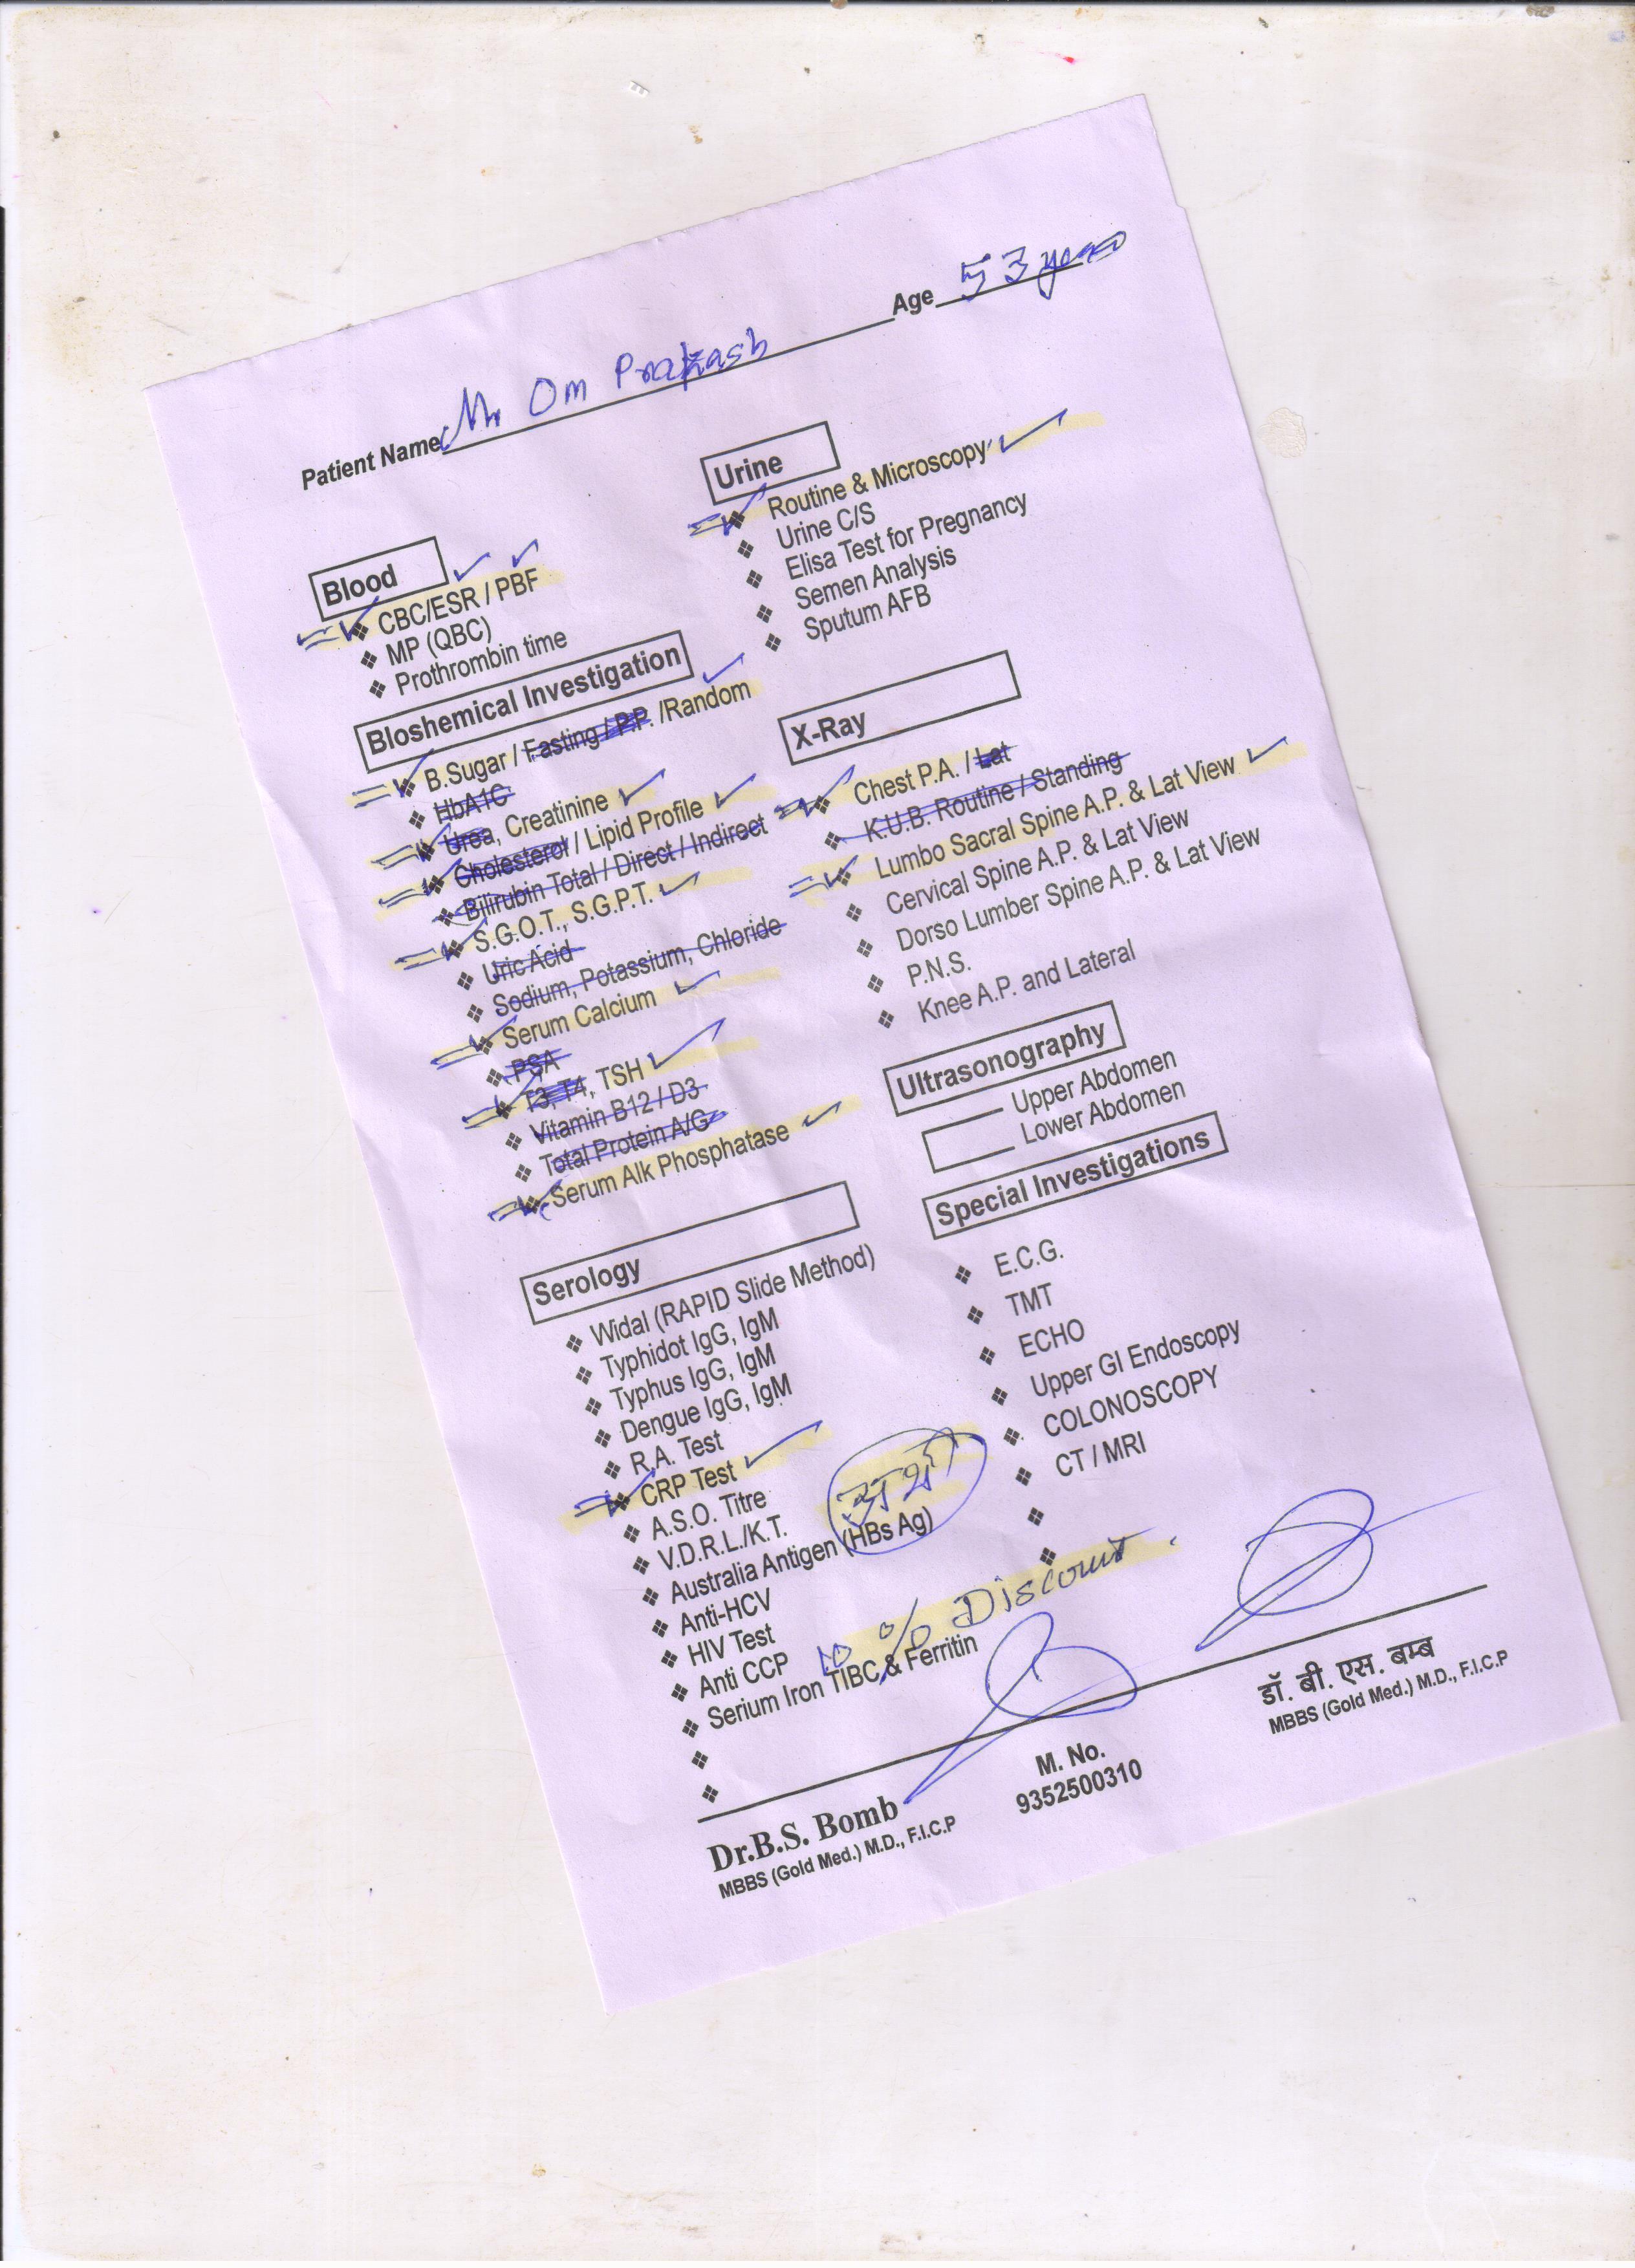 Patient Name Mr Om Prakash Age 53 years
Blood
CBC/ESR / PBF
MP (QBC)
Prothrombin time
Bloshemical Investigation
B.Sugar / Fasting / P.P. /Random
HbA1C
Urea, Creatinine
Cholesterol / Lipid Profile
Bilirubin Total / Direct / Indirect
S.G.O.T., S.G.P.T.
Uric Acid
Sodium, Potassium, Chloride
Serum Calcium
PSA
T3, T4, TSH
Vitamin B12 / D3
Total Protein A/G
Serum Alk Phosphatase
Serology
Widal (RAPID Slide Method)
Typhidot IgG, IgM
Typhus IgG, IgM
Dengue IgG, IgM
R.A. Test
CRP Test
A.S.O. Titre
V.D.R.L./K.T.
Australia Antigen (HBs Ag)
Anti-HCV
HIV Test
Anti CCP
Serium Iron TIBC & Ferritin
Urine
Routine & Microscopy
Urine C/S
Elisa Test for Pregnancy
Semen Analysis
Sputum AFB
X-Ray
Chest P.A. / Lat
K.U.B. Routine / Standing
Lumbo Sacral Spine A.P. & Lat View
Cervical Spine A.P. & Lat View
Dorso Lumber Spine A.P. & Lat View
P.N.S.
Knee A.P. and Lateral
Ultrasonography
Upper Abdomen
Lower Abdomen
Special Investigations
E.C.G.
TMT
ECHO
Upper GI Endoscopy
COLONOSCOPY
CT / MRI
10 % Discount.
Dr.B.S. Bomb
MBBS (Gold Med.) M.D., F.I.C.P
M. No.
9352500310
डॉ. बी. एस. बम्ब
MBBS (Gold Med.) M.D., F.I.C.P